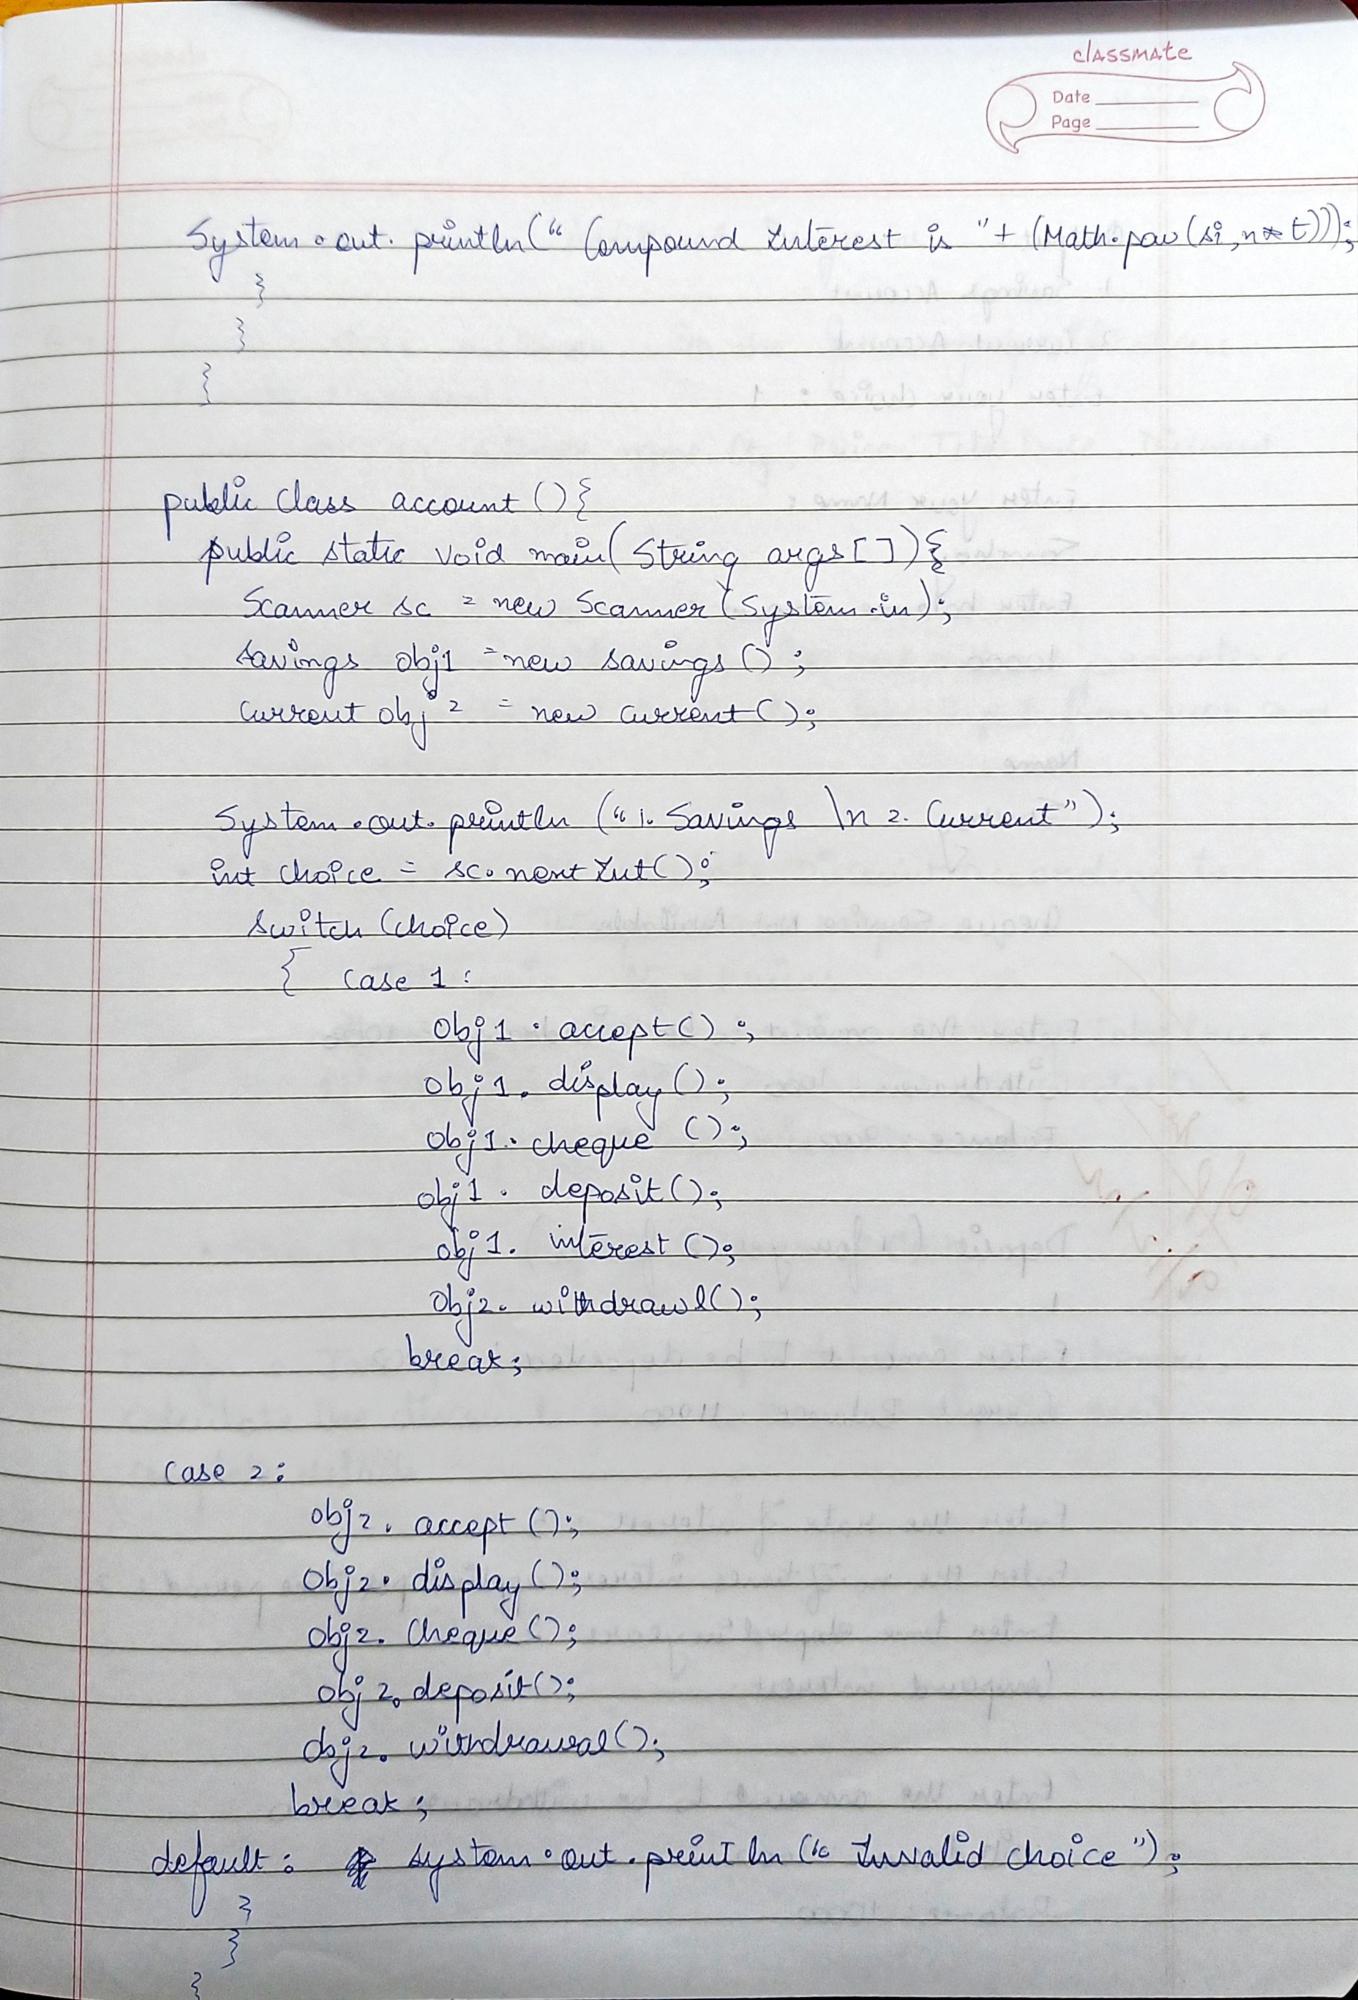 classmate
Date
Page
System.out.println(" Compound Interest is "+ (Math.pow(si,n*t)));
}
}
}
public class account (){
public static void main( String args[]){
Scanner sc = new Scanner(System.in);
savings obj1 = new savings();
current obj2 = new current();
System.out.println ("1. Savings \n 2. Current");
int choice = sc.nextInt();
switch (choice)
{ case 1:
obj1.accept();
obj1.display();
obj1.cheque ();
obj1.deposit();
obj1.interest();
obj2.withdrawl();
break;
case 2:
obj2.accept();
obj2.display();
obj2.cheque();
obj2.deposit();
obj2.withdrawal();
break;
default: system.out.println (" Invalid choice");
}
}
}